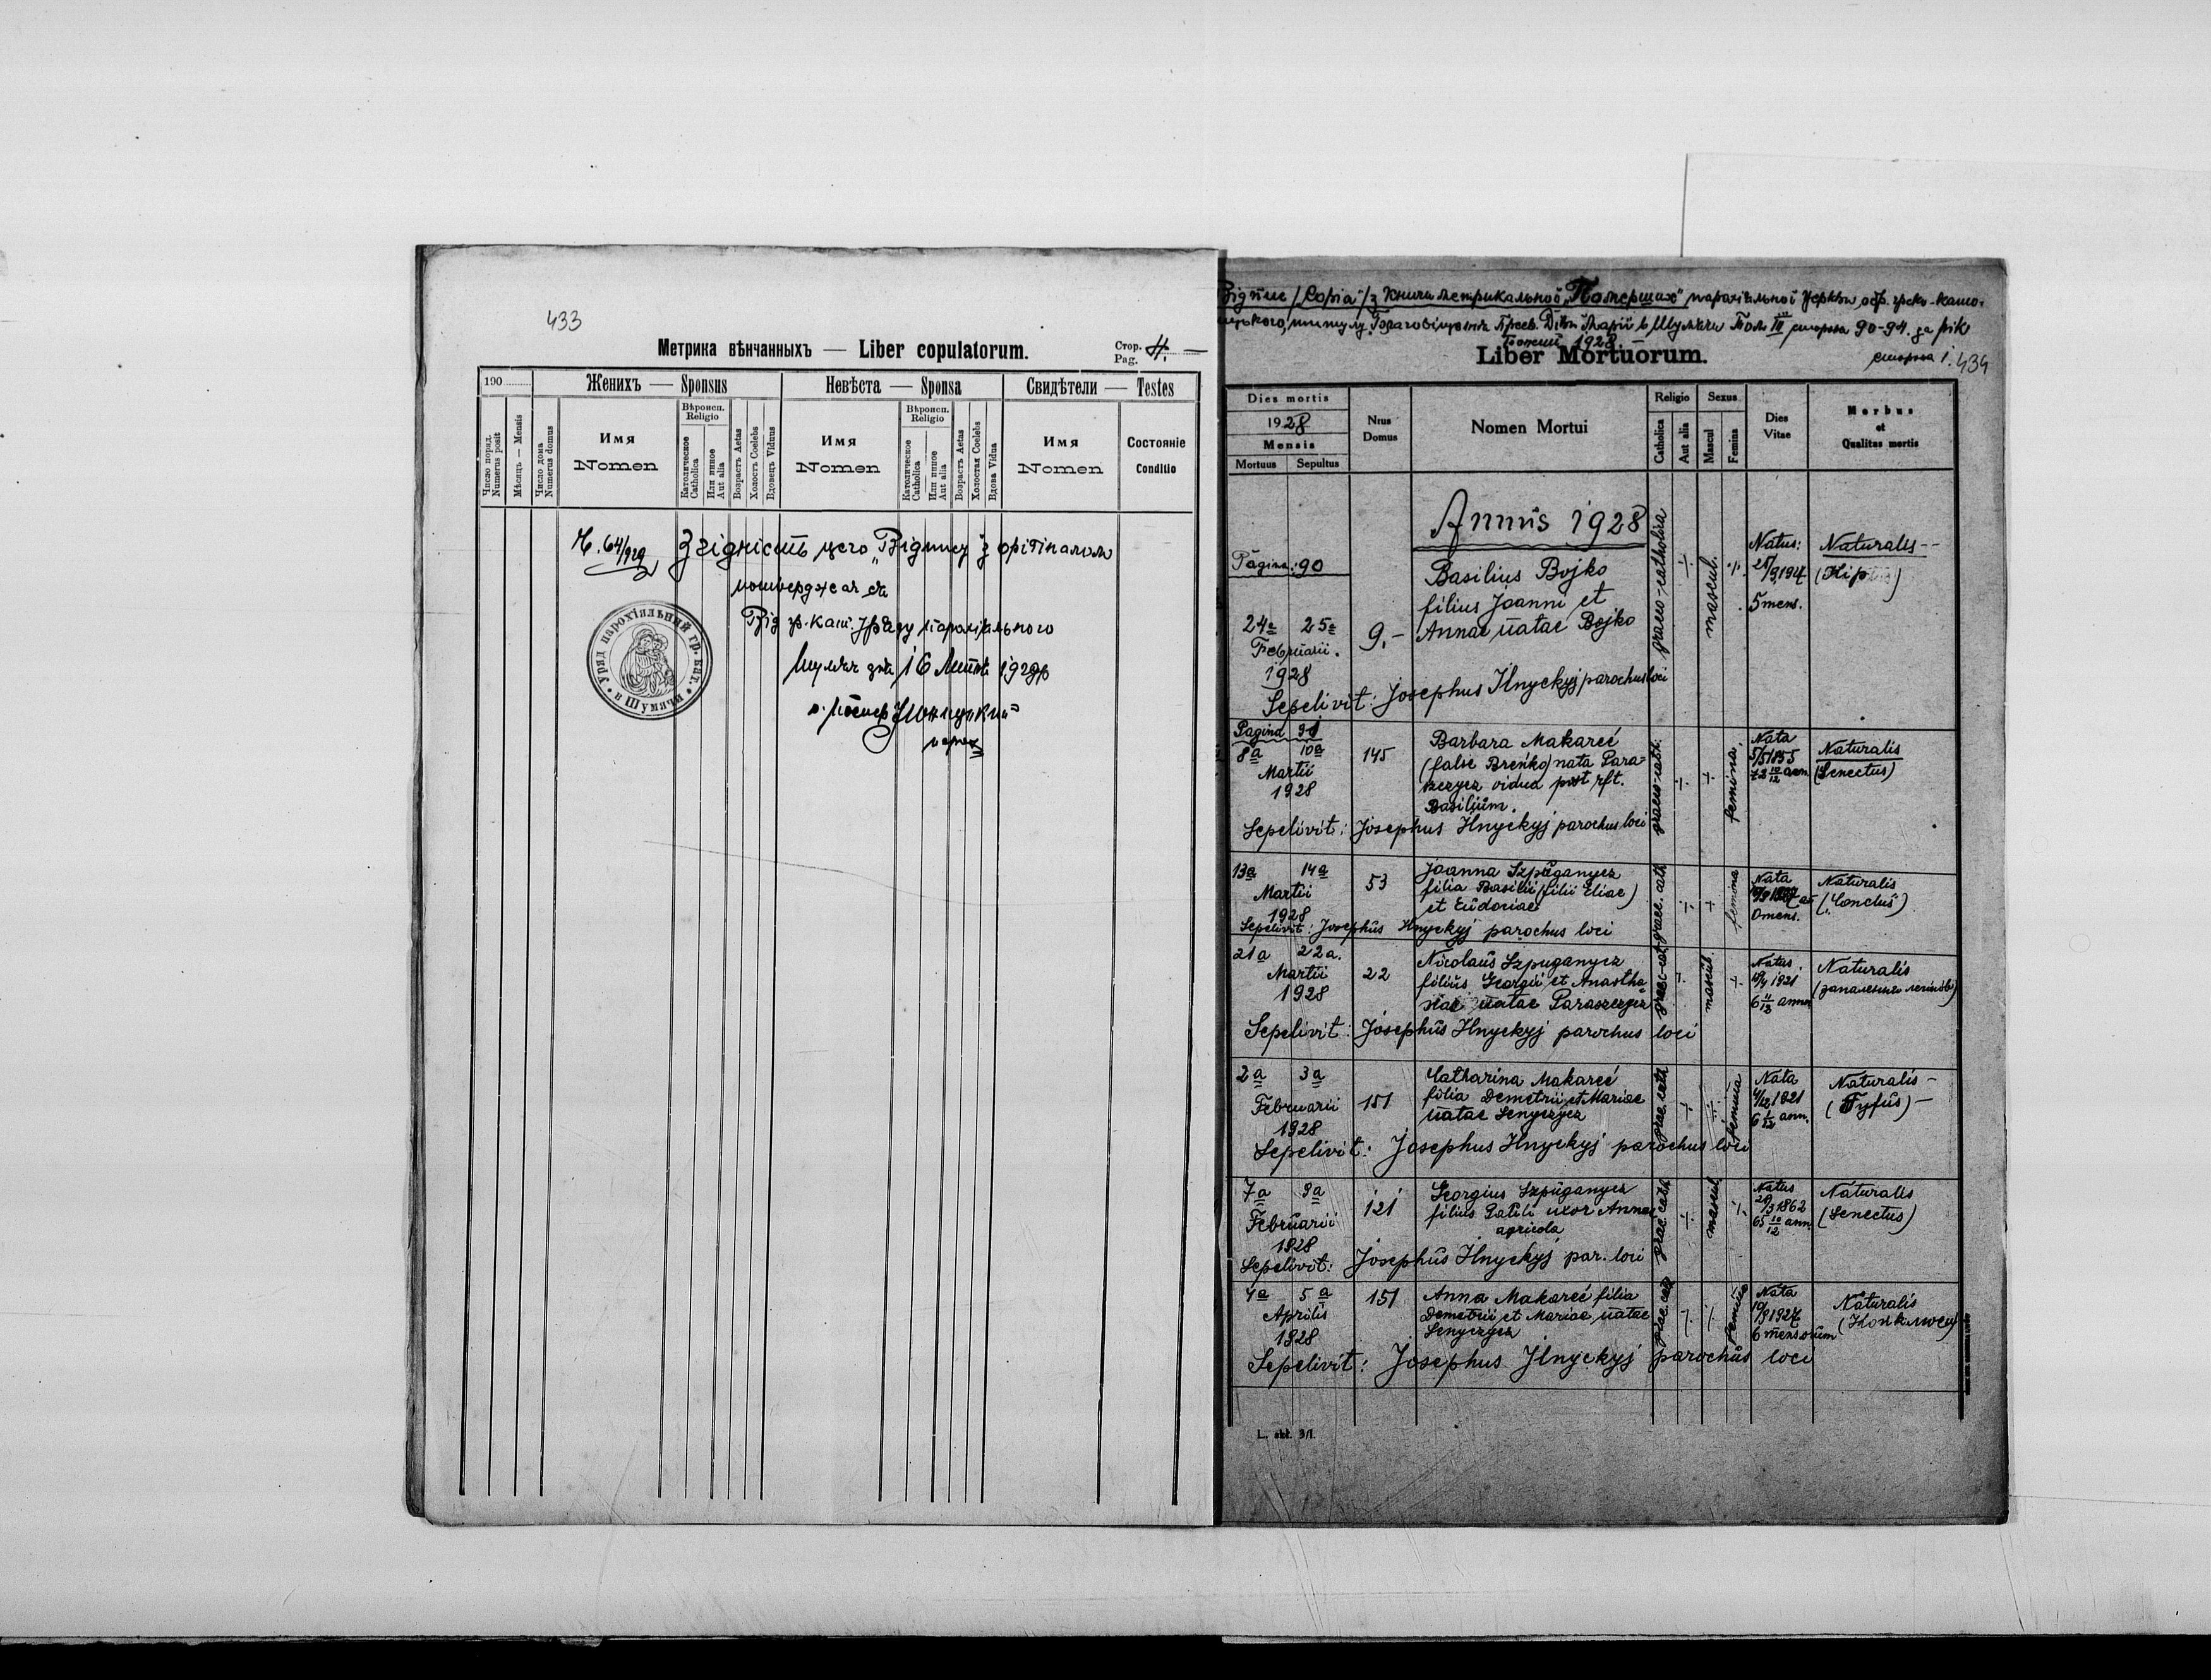 433
Метрика вѣнчанныхъ — Liber copulatorum.
Стор. Pag. 4. —
190
Женихъ — Sponsus
Невѣста — Sponsa
Свидѣтели — Testes
Число поряд. Numerus posit
Мѣсяцъ — Mensis
Число дома Numerus domus
Имя Nomen
Вѣроисп. Religio
Католическое Catholica
Или иное Aut alia
Возрастъ Aetas
Холостъ Coelebs
Вдовецъ Viduus
Имя Nomen
Вѣроисп. Religio
Католическое Catholica
Или иное Aut alia
Возрастъ Aetas
Холостая Coelebs
Вдова Vidua
Имя Nomen
Состояніе Conditio
Ч. 64/929 Згідність цего „Відпису з оріґіналом
потверджає ся
Від гр. кат. Уряду парохіяльного
Шумяч дня 16 Липня 1929 р
о. Йосиф Ільницкий
парох
Уряд парохіяльний гр. кат. в Шумячи
Відпис /Copia/ з Книги метрикальної „Померших" парохіяльної Церкви, обр. греко-като-
лицького, титулу Благовіщення Пресв. Діви Марії в Шумячи Том III сторона 90-94. за рік
Божий 1928.
Liber Mortuorum.
сторона 1. 434
Dies mortis
1928
Mensis
Mortuus Sepultus
Nrus Domus
Nomen Mortui
Religio
Catholica
Aut alia
Sexus
Mascul
Femina
Dies Vitae
Morbus et Qualitas mortis
Annus 1928
Pagina: 90
24a 25a
Februarii.
1928
9.-
Basilius Bojko
filius Joanni et
Annae natae Bojko
graeco-catholica
÷
mascul.
÷
Natus:
5 mens.
Naturalis --
Sepelivit: Josephus Ilnyckyj parochus loci
Pagina 91
8a 10a
Martii
1928
145
Barbara Makareć
(false Breńko) nata Para-
szczycz vidua post rft.
Basilium.
graeco-cath.
÷
+
femina.
Nata
5/5 1855
72 10/12 ann.
Naturalis
(Senectus)
Sepelivit: Josephus Ilnyckyj parochus loci
13a 14a
Martii
1928
53
Joanna Szpuganycz
filia Basilii (filii Eliae)
et Eudoriae
graec. cath
÷
+
femina
Nata
mens.
Naturalis
Sepelivit: Josephus Ilnyckyj parochus loci
21a 22a.
Martii
1928
22
Nicolaus Szpuganycz
filius Georgii et Anastha-
siae natae Paraszczycz
graec-cat.
÷
mascul.
+
Natus.
1921
6 11/12 annor
Naturalis
(запаленнє легких)
Sepelivit: Josephus Ilnyckyj parochus loci
2a 3a
Februarii
1928
151
Catharina Makareć
filia Demetrii et Mariae
natae Senyczycz
grae. cath
÷
÷
femina
Nata
4/12 1921
6 1/12 ann.
Naturalis -
(Tyfus) -
Sepelivit: Josephus Ilnyckyj parochus loci
7a 9a
Februarii
1928
121
Georgius Szpuganycz
filius Pauli uxor Annae
agricola
grae. cath
÷
mascul.
÷
Natus
1862
65 10/12 ann.
Naturalis
(Senectus)
Sepelivit: Josephus Ilnyckyj par. loci
4a 5a
Aprilis
1928
151
Anna Makareć filia
Demetrii et Mariae natae
Senyczycz
grae. cat
÷
÷
femina
Nata
19/9 1927
6 mensorum
Naturalis
(Коклюш)
Sepelivit: Josephus Ilnyckyj parochus loci
L. abt. 3/1.